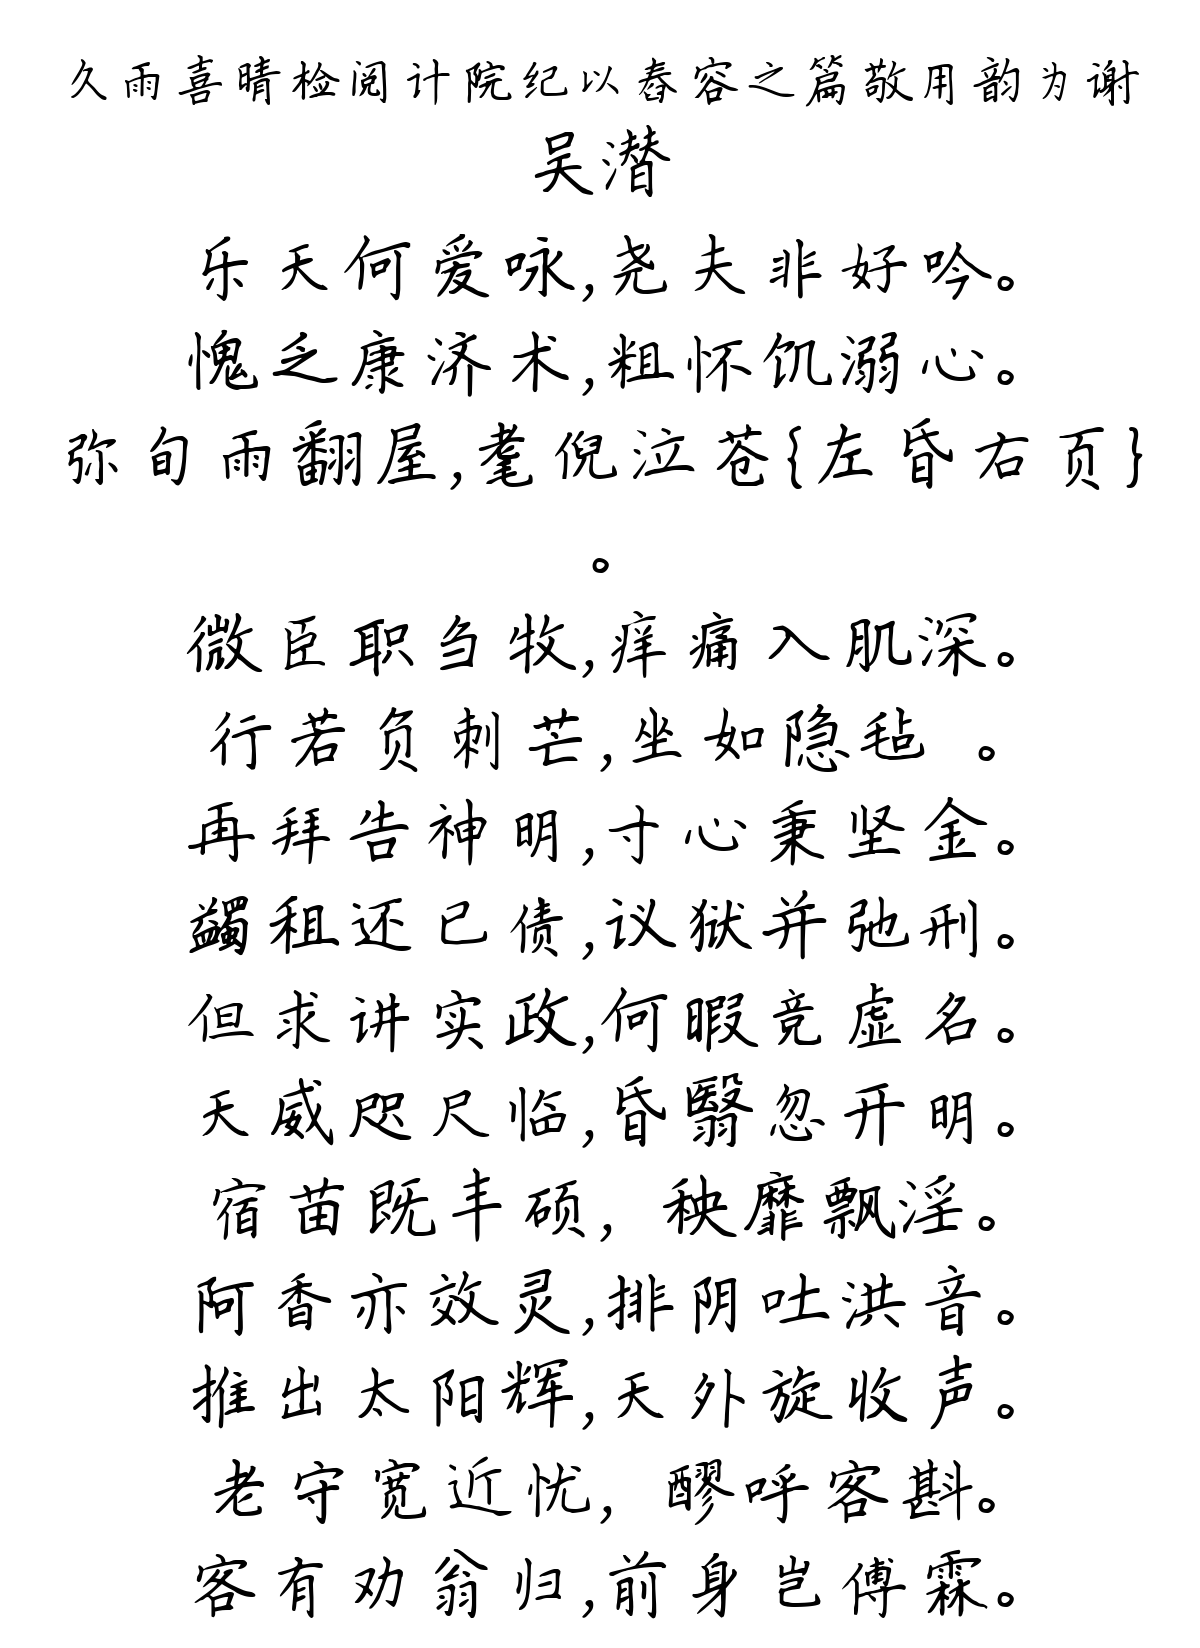 久雨喜晴检阅计院纪以舂容之篇敬用韵为谢
吴潜
乐天何爱咏,尧夫非好吟。
愧乏康济术,粗怀饥溺心。
弥旬雨翻屋,耄倪泣苍{左昏右页}
。
微臣职刍牧,痒痛入肌深。
行若负刺芒,坐如隐毡 。
再拜告神明,寸心秉坚金。
蠲租还已债,议狱并弛刑。
但求讲实政,何暇竞虚名。
天威咫尺临,昏翳忽开明。
宿苗既丰硕, 秧靡飘淫。
阿香亦效灵,排阴吐洪音。
推出太阳辉,天外旋收声。
老守宽近忧, 醪呼客斟。
客有劝翁归,前身岂傅霖。